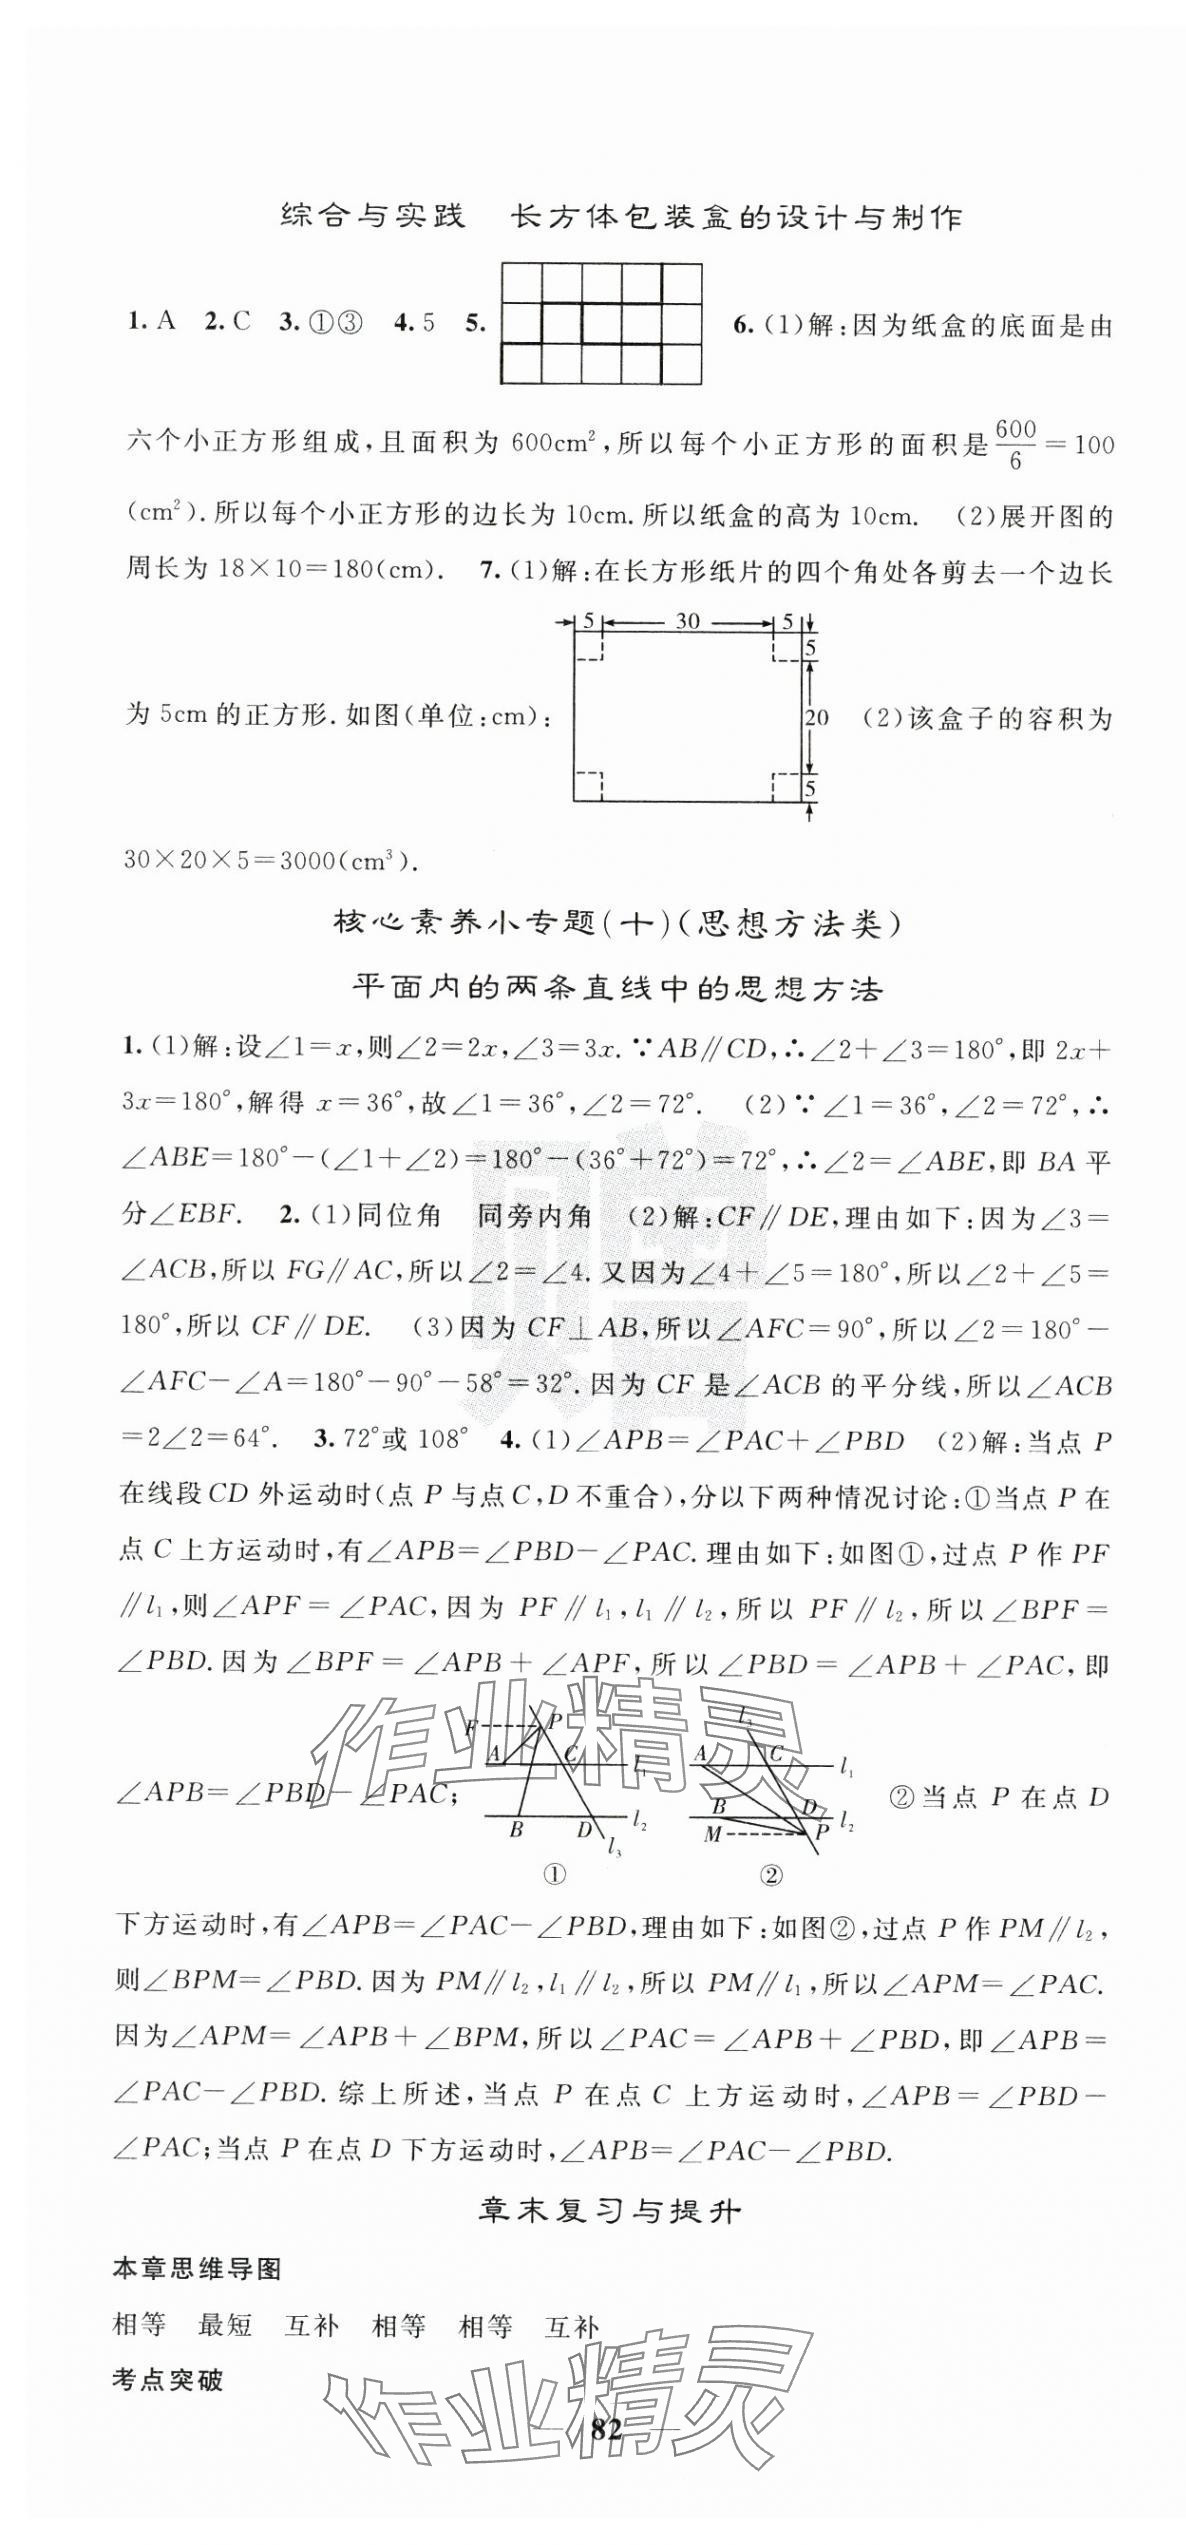 综合与实践　长方体包装盒的设计与制作
1. A　2. C　3. ①③　4. 5　5.　6. (1)解:因为纸盒的底面是由
六个小正方形组成,且面积为 600cm²,所以每个小正方形的面积是600/6=100
(cm²).所以每个小正方形的边长为 10cm.所以纸盒的高为 10cm.　(2)展开图的
周长为 18×10=180(cm).　7. (1)解:在长方形纸片的四个角处各剪去一个边长
5　30　5
5
为 5cm 的正方形.如图(单位:cm):　20　(2)该盒子的容积为
5
30×20×5=3000(cm³).
核心素养小专题(十)(思想方法类)
平面内的两条直线中的思想方法
1. (1)解:设∠1=x,则∠2=2x,∠3=3x.∵AB∥CD,∴∠2+∠3=180°,即 2x+
3x=180°,解得 x=36°,故∠1=36°,∠2=72°.　(2)∵∠1=36°,∠2=72°,∴
∠ABE=180°-(∠1+∠2)=180°-(36°+72°)=72°,∴∠2=∠ABE,即 BA 平
分∠EBF.　2. (1)同位角　同旁内角　(2)解:CF∥DE,理由如下:因为∠3=
∠ACB,所以 FG∥AC,所以∠2=∠4.又因为∠4+∠5=180°,所以∠2+∠5=
180°,所以 CF∥DE.　(3)因为 CF⊥AB,所以∠AFC=90°,所以∠2=180°-
∠AFC-∠A=180°-90°-58°=32°.因为 CF 是∠ACB 的平分线,所以∠ACB
=2∠2=64°.　3. 72°或 108°　4. (1)∠APB=∠PAC+∠PBD　(2)解:当点 P
在线段 CD 外运动时(点 P 与点 C,D 不重合),分以下两种情况讨论:①当点 P 在
点 C 上方运动时,有∠APB=∠PBD-∠PAC.理由如下:如图①,过点 P 作 PF
∥l₁,则∠APF=∠PAC,因为 PF∥l₁,l₁∥l₂,所以 PF∥l₂,所以∠BPF=
∠PBD.因为∠BPF=∠APB+∠APF,所以∠PBD=∠APB+∠PAC,即
F　P　l₃
A　C　l₁　A　C　l₁
∠APB=∠PBD-∠PAC;　②当点 P 在点 D
B　D　l₂　l₃　B　D　l₂　M　P
①　②
下方运动时,有∠APB=∠PAC-∠PBD,理由如下:如图②,过点 P 作 PM∥l₂,
则∠BPM=∠PBD.因为 PM∥l₂,l₁∥l₂,所以 PM∥l₁,所以∠APM=∠PAC.
因为∠APM=∠APB+∠BPM,所以∠PAC=∠APB+∠PBD,即∠APB=
∠PAC-∠PBD.综上所述,当点 P 在点 C 上方运动时,∠APB=∠PBD-
∠PAC;当点 P 在点 D 下方运动时,∠APB=∠PAC-∠PBD.
章末复习与提升
本章思维导图
相等　最短　互补　相等　相等　互补
考点突破
82
作业精灵
作业精灵